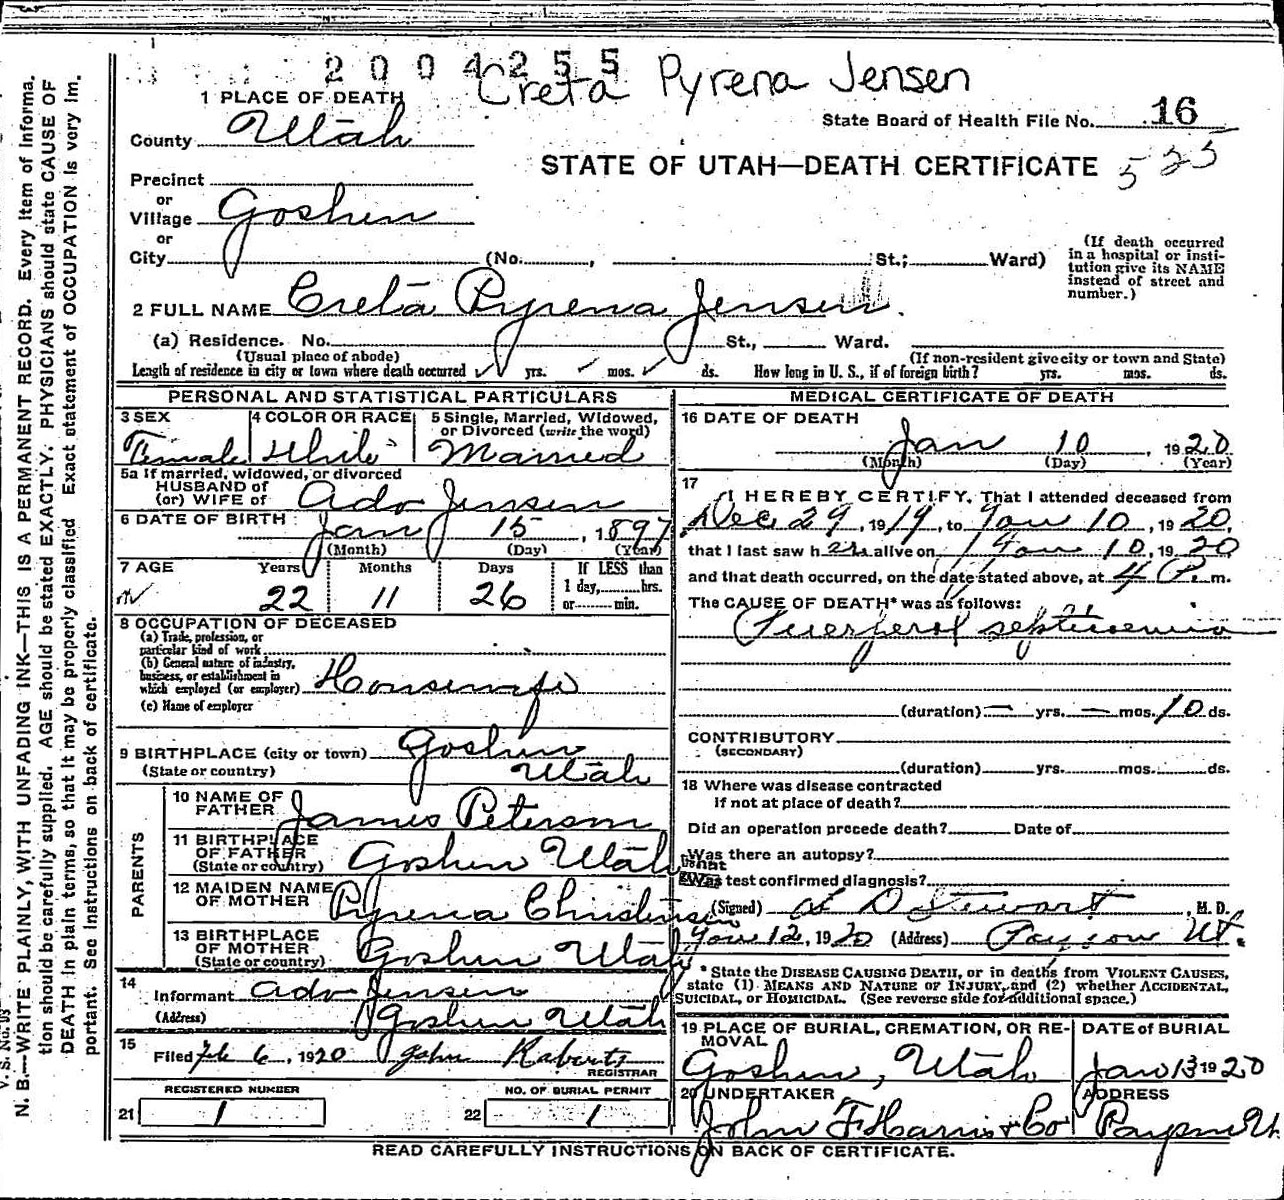 2004255
Creta Pyrena Jensen
1 PLACE OF DEATH
State Board of Health File No. 16
County Utah
STATE OF UTAH—DEATH CERTIFICATE 525
Precinct
or
Village Goshen
or
City (No. , St.; Ward)
(If death occurred in a hospital or institution give its NAME instead of street and number.)
2 FULL NAME Creta Pyrena Jensen.
(a) Residence. No. St., Ward.
(Usual place of abode) (If non-resident give city or town and State)
Length of residence in city or town where death occurred yrs. mos. ds. How long in U. S., if of foreign birth? yrs. mos. ds.
PERSONAL AND STATISTICAL PARTICULARS
3 SEX Female
4 COLOR OR RACE White
5 Single, Married, Widowed, or Divorced (write the word) Married
5a If married, widowed, or divorced
HUSBAND of
(or) WIFE of Adv Jensen
6 DATE OF BIRTH Jan 15, 1897
(Month) (Day) (Year)
7 AGE Years Months Days If LESS than
1 day, hrs.
or min.
22 11 26
8 OCCUPATION OF DECEASED
(a) Trade, profession, or
particular kind of work
(b) General nature of industry,
business, or establishment in
which employed (or employer) Housewife
(c) Name of employer
9 BIRTHPLACE (city or town) Goshen
(State or country) Utah
PARENTS
10 NAME OF
FATHER James Peterson
11 BIRTHPLACE
OF FATHER
(State or country) Goshen Utah
12 MAIDEN NAME
OF MOTHER Pyrena Christensen
13 BIRTHPLACE
OF MOTHER
(State or country) Goshen Utah
14
Informant Adv Jensen
(Address) Goshen Utah
15
Filed Feb 6, 1920 John Roberts
REGISTRAR
REGISTERED NUMBER NO. OF BURIAL PERMIT
21 1 22 1
MEDICAL CERTIFICATE OF DEATH
16 DATE OF DEATH
Jan 10, 1920
(Month) (Day) (Year)
17
I HEREBY CERTIFY, That I attended deceased from
Dec 29, 1919, to Jan 10, 1920,
that I last saw h er alive on Jan 10, 1920
and that death occurred, on the date stated above, at 4 P. m.
The CAUSE OF DEATH* was as follows:
Puerperal septicemia
(duration) — yrs. — mos. 10 ds.
CONTRIBUTORY
(SECONDARY)
(duration) yrs. mos. ds.
18 Where was disease contracted
if not at place of death?
Did an operation precede death? Date of
Was there an autopsy?
test confirmed diagnosis?
(Signed) D Stewart, M. D.
Jan 12, 1920 (Address) Payson Ut.
* State the DISEASE CAUSING DEATH, or in deaths from VIOLENT CAUSES,
state (1) MEANS AND NATURE OF INJURY, and (2) whether ACCIDENTAL,
SUICIDAL, or HOMICIDAL. (See reverse side for additional space.)
19 PLACE OF BURIAL, CREMATION, OR REMOVAL
Goshen, Utah
DATE of BURIAL
Jan 13 1920
20 UNDERTAKER
John F Harris & Co
ADDRESS
Payson Ut.
READ CAREFULLY INSTRUCTIONS ON BACK OF CERTIFICATE.
V. S. No.
N. B.—WRITE PLAINLY, WITH UNFADING INK—THIS IS A PERMANENT RECORD. Every item of informa-
tion should be carefully supplied. AGE should be stated EXACTLY. PHYSICIANS should state CAUSE OF
DEATH in plain terms, so that it may be properly classified. Exact statement of OCCUPATION is very im-
portant. See instructions on back of certificate.